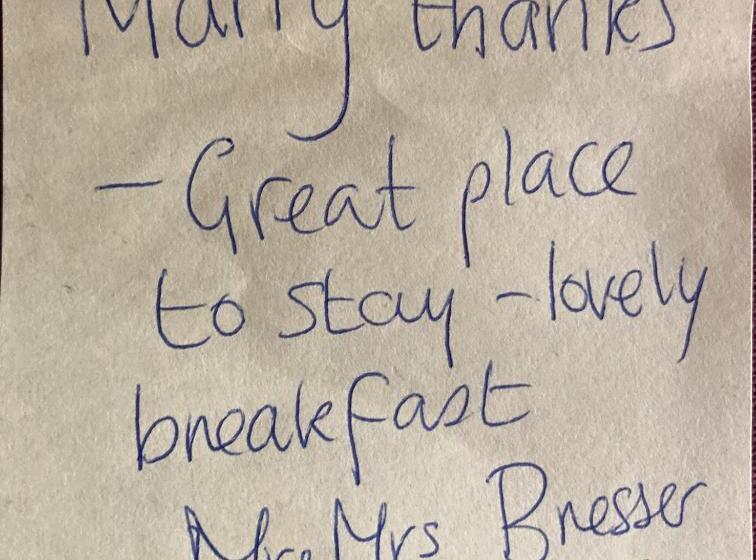 Many thanks
- Great place
to stay - lovely
breakfast
Mrs Bresser